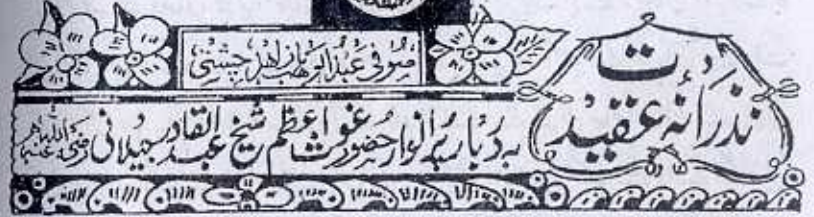 نذرانۂ عقیدت
صوفی عبدالوہاب زاہد چشتی
بہ دربار پُر انوار حضور غوث اعظم شیخ عبدالقادر جیلانی رضی اللہ عنہ